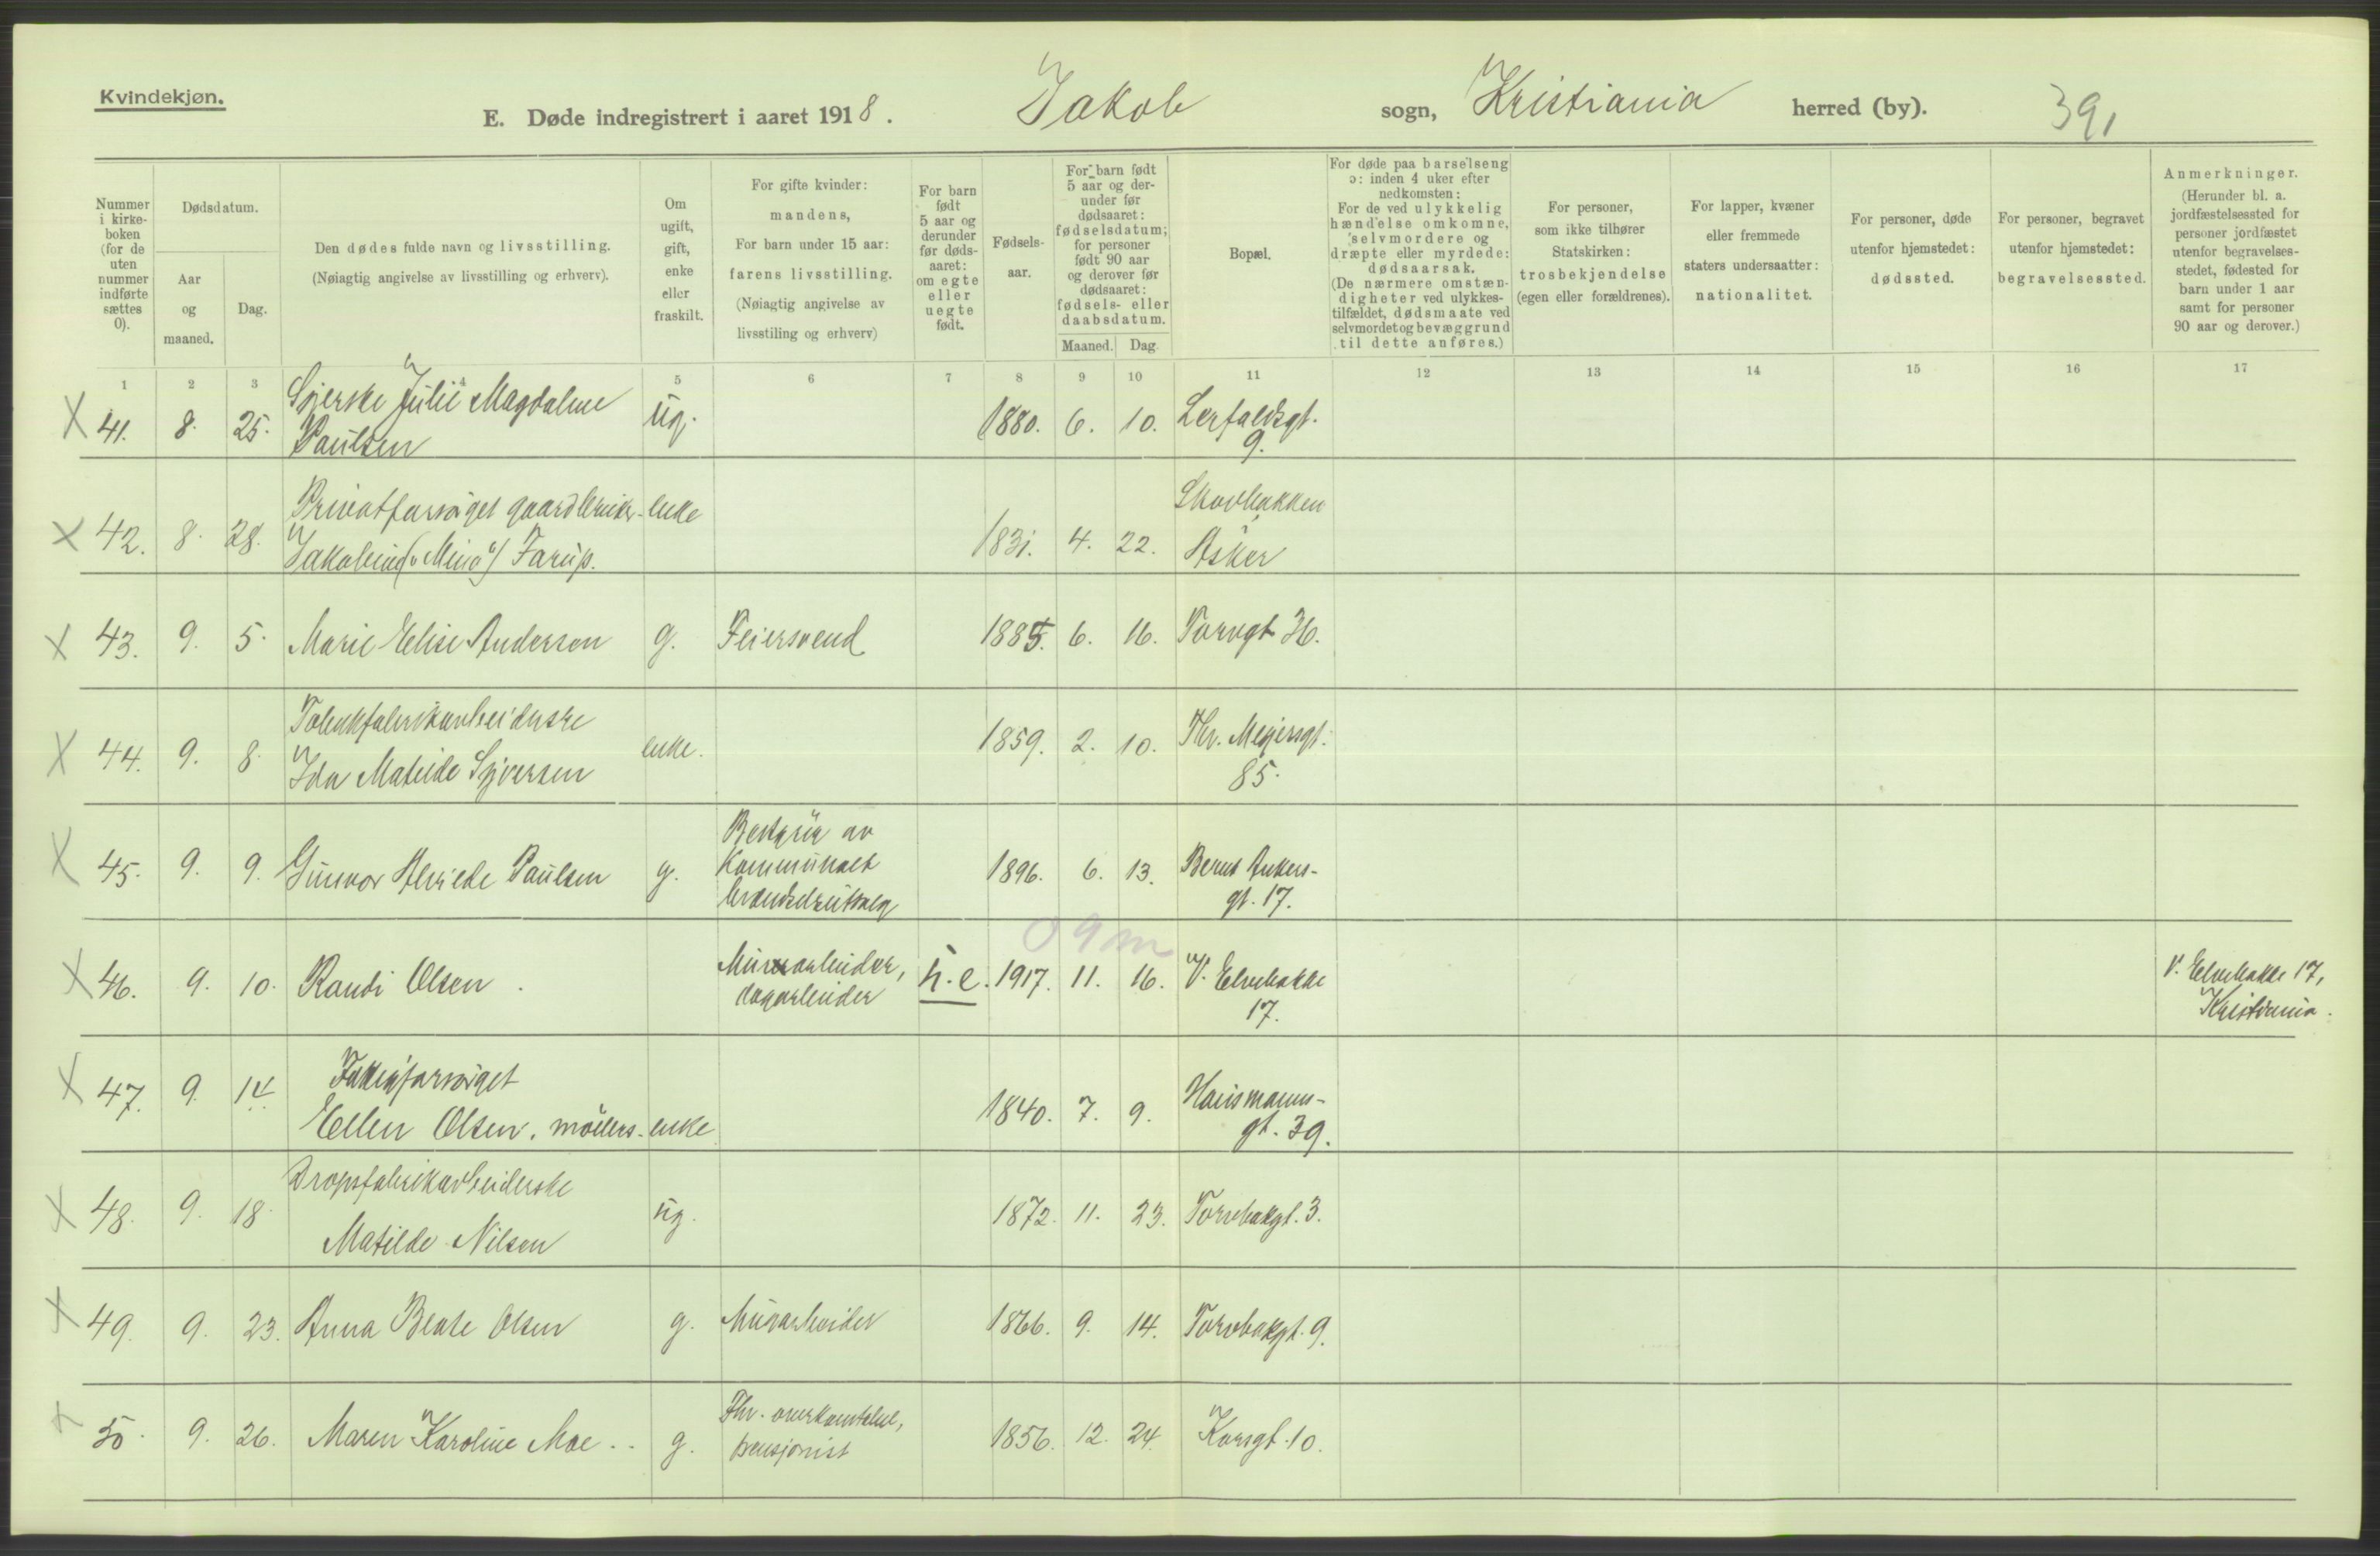 Kvindekjøn.
E. Døde indregistrert i aaret 1918. Jakob sogn, Kristiania herred (by). 391
Nummer i kirke-boken (for de uten nummer indførte sættes 0).
Dødsdatum.
Aar og maaned.
Dag.
Den dødes fulde navn og livsstilling.
(Nøiagtig angivelse av livsstilling og erhverv).
Om ugift, gift, enke eller fraskilt.
For gifte kvinder:
mandens,
For barn under 15 aar:
farens livsstilling.
(Nøiagtig angivelse av
livsstiling og erhverv)
For barn født 5 aar og derunder før døds-aaret: om egte eller uegte født.
Fødsels-aar.
For barn født 5 aar og der-under før dødsaaret: fødselsdatum; for personer født 90 aar og derover før dødsaaret: fødsels- eller daabsdatum.
Maaned. Dag.
Bopæl.
For døde paa barselseng
ɔ: inden 4 uker efter
nedkomsten:
For de ved ulykkelig
hændelse omkomne,
selvmordere og
dræpte eller myrdede:
dødsaarsak.
(De nærmere omstæn-
digheter ved ulykkes-
tilfældet, dødsmaate ved
selvmordet og bevæggrund
til dette anføres.)
For personer,
som ikke tilhører
Statskirken:
trosbekjendelse
(egen eller forældrenes).
For lapper, kvæner
eller fremmede
staters undersaatter:
nationalitet.
For personer, døde
utenfor hjemstedet:
dødssted.
For personer, begravet
utenfor hjemstedet:
begravelsessted.
Anmerkninger.
(Herunder bl. a.
jordfæstelsessted for
personer jordfæstet
utenfor begravelses-
stedet, fødested for
barn under 1 aar
samt for personer
90 aar og derover.)
1 2 3 4 5 6 7 8 9 10 11 12 13 14 15 16 17
X 41. 8. 25. Syerske Julie Magdalene Paulsen ug. 1880. 6. 10. Lerfaldsgt. 9.
X 42. 8. 28. Privatforsörget gaardbruker-enke
Jakobine ("Mina") Farup. 1831. 4. 22. Skovbakken Asker
X 43. 9. 5. Marie Elise Andersen g. Feiersvend 1885. 6. 16. Torvgt 36.
X 44. 9. 8. Tobakfabrikarbeiderske
Ida Matilde Syversen enke. 1859. 2. 10. Thv. Meyersgt. 85.
X 45. 9. 9. Gunvor Alvilde Paulsen g. Bestyrer av
Kommunalt
brændselsutsalg 1896. 6. 13. Bernt Ankers-
gt. 17.
0 9 m
X 46. 9. 10. Randi Olsen. Murarbeider,
dagarbeider u. e. 1917. 11. 16. V. Elvebakke
17. V. Elvebakke 17,
Kristiania.
X 47. 9. 14. Fattigforsörget
Ellen Olsen, möllers-enke 1840. 7. 9. Hausmanns-
gt. 39.
X 48. 9. 18. Dropsfabrikarbeiderske
Matilde Nilsen ug. 1872. 11. 23. Torvbakgt. 3.
X 49. 9. 23. Anna Beate Olsen g. Murarbeider 1866. 9. 14. Torvbakgt. 9.
X 50. 9. 26. Maren Karoline Moe g. Fhv. overkonstabel,
pensjonist 1856. 12. 24. Korsgt. 10.